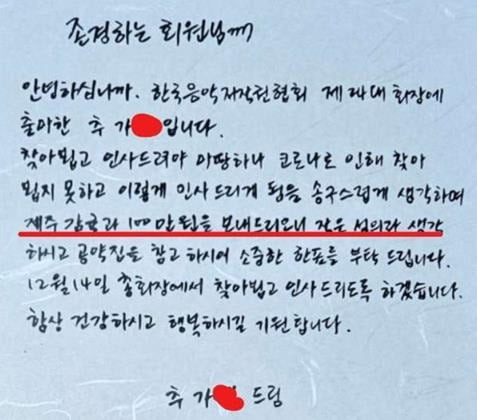 존경하는 회원님께
안녕하십니까. 한국음악저작권협회 제 24대 회장에
출마한 추 가입니다.
찾아뵙고 인사드려야 마땅하나 코로나로 인해 찾아
뵙지 못하고 이렇게 인사 드리게 됨을 송구스럽게 생각하며
제주 감귤과 100만원을 보내드리오니 작은 성의라 생각
하시고 공약집을 참고 하시어 소중한 한표를 부탁 드립니다.
12월 14일 총회장에서 찾아뵙고 인사드리도록 하겠습니다.
항상 건강하시고 행복하시길 기원 합니다.
추 가 드림